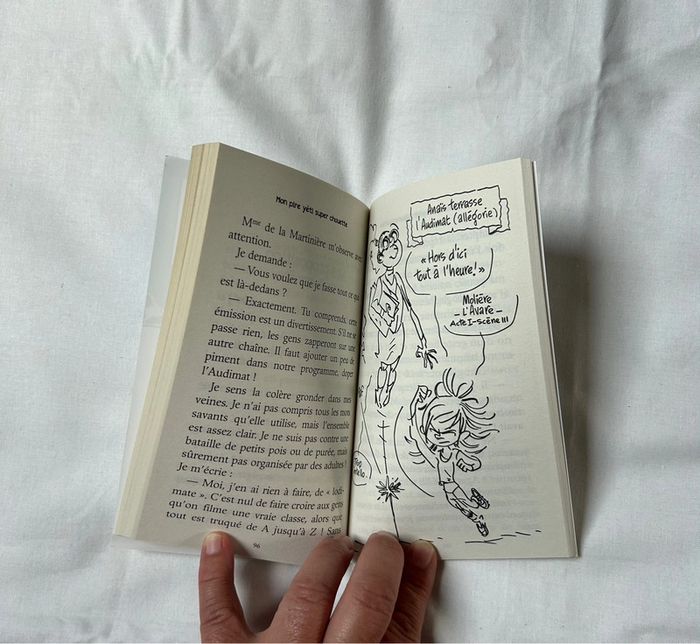 Mon pire yéti super chouette
Mme de la Martinière m'observe avec
attention.
Je demande :
— Vous voulez que je fasse tout ce qui
est là-dedans ?
— Exactement. Tu comprends, cette
émission est un divertissement. S'il ne se
passe rien, les gens zapperont sur une
autre chaîne. Il faut ajouter un peu de
piment dans notre programme, doper
l'Audimat !
Je sens la colère gronder dans mes
veines. Je n'ai pas compris tous les mots
savants qu'elle utilise, mais l'ensemble
est assez clair. Je ne suis pas contre une
bataille de petits pois ou de purée, mais
sûrement pas organisée par des adultes !
Je m'écrie :
— Moi, j'en ai rien à faire, de « lodi-
mate ». C'est nul de faire croire aux gens
qu'on filme une vraie classe, alors que
tout est truqué de A jusqu'à Z ! Sans
96
Anaïs terrasse
l'Audimat (allégorie)
« Hors d'ici
tout à l'heure ! »
Molière
– L'Avare –
Acte I-Scène III